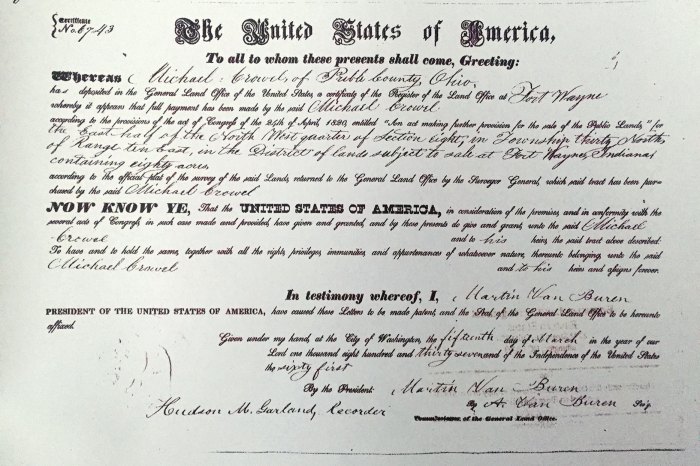 Certificate
No. 6743
The United States of America,
To all to whom these presents shall come, Greeting:
Whereas Michael Crowel, of Preble County, Ohio,
has deposited in the General Land Office of the United States, a certificate of the Register of the Land Office at Fort Wayne
whereby it appears that full payment has been made by the said Michael Crowel
according to the provisions of the act of Congress of the 24th of April, 1820, entitled "An act making further provision for the sale of the Public Lands," for
the East half of the North West quarter of Section eight, in Township thirty North
of Range ten East, in the District of lands subject to sale at Fort Wayne, Indiana,
containing eighty acres
according to the official plat of the survey of the said Lands, returned to the General Land Office by the Surveyor General, which said tract has been pur-
chased by the said Michael Crowel
NOW KNOW YE, That the UNITED STATES OF AMERICA, in consideration of the premises, and in conformity with the
several acts of Congress, in such case made and provided, have given and granted, and by these presents do give and grant, unto the said Michael
Crowel and to his heirs, the said tract above described:
To have and to hold the same, together with all the rights, privileges, immunities, and appurtenances of whatsoever nature, thereunto belonging, unto the said
Michael Crowel and to his heirs and assigns forever.
In testimony whereof, I, Martin Van Buren
PRESIDENT OF THE UNITED STATES OF AMERICA, have caused these Letters to be made patent, and the Seal of the General Land Office to be hereunto
affixed.
Given under my hand, at the City of Washington, the fifteenth day of March in the year of our
Lord one thousand eight hundred and thirty seven and of the Independence of the United States
the sixty first
By the President: Martin Van Buren
By A. Van Buren Sec'y.
Hudson M. Garland, Recorder of the General Land Office.